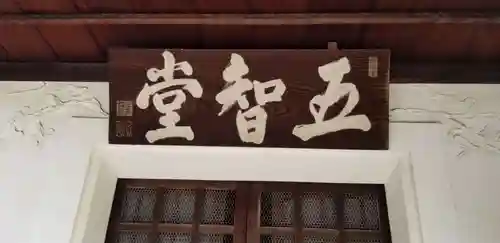 五智堂